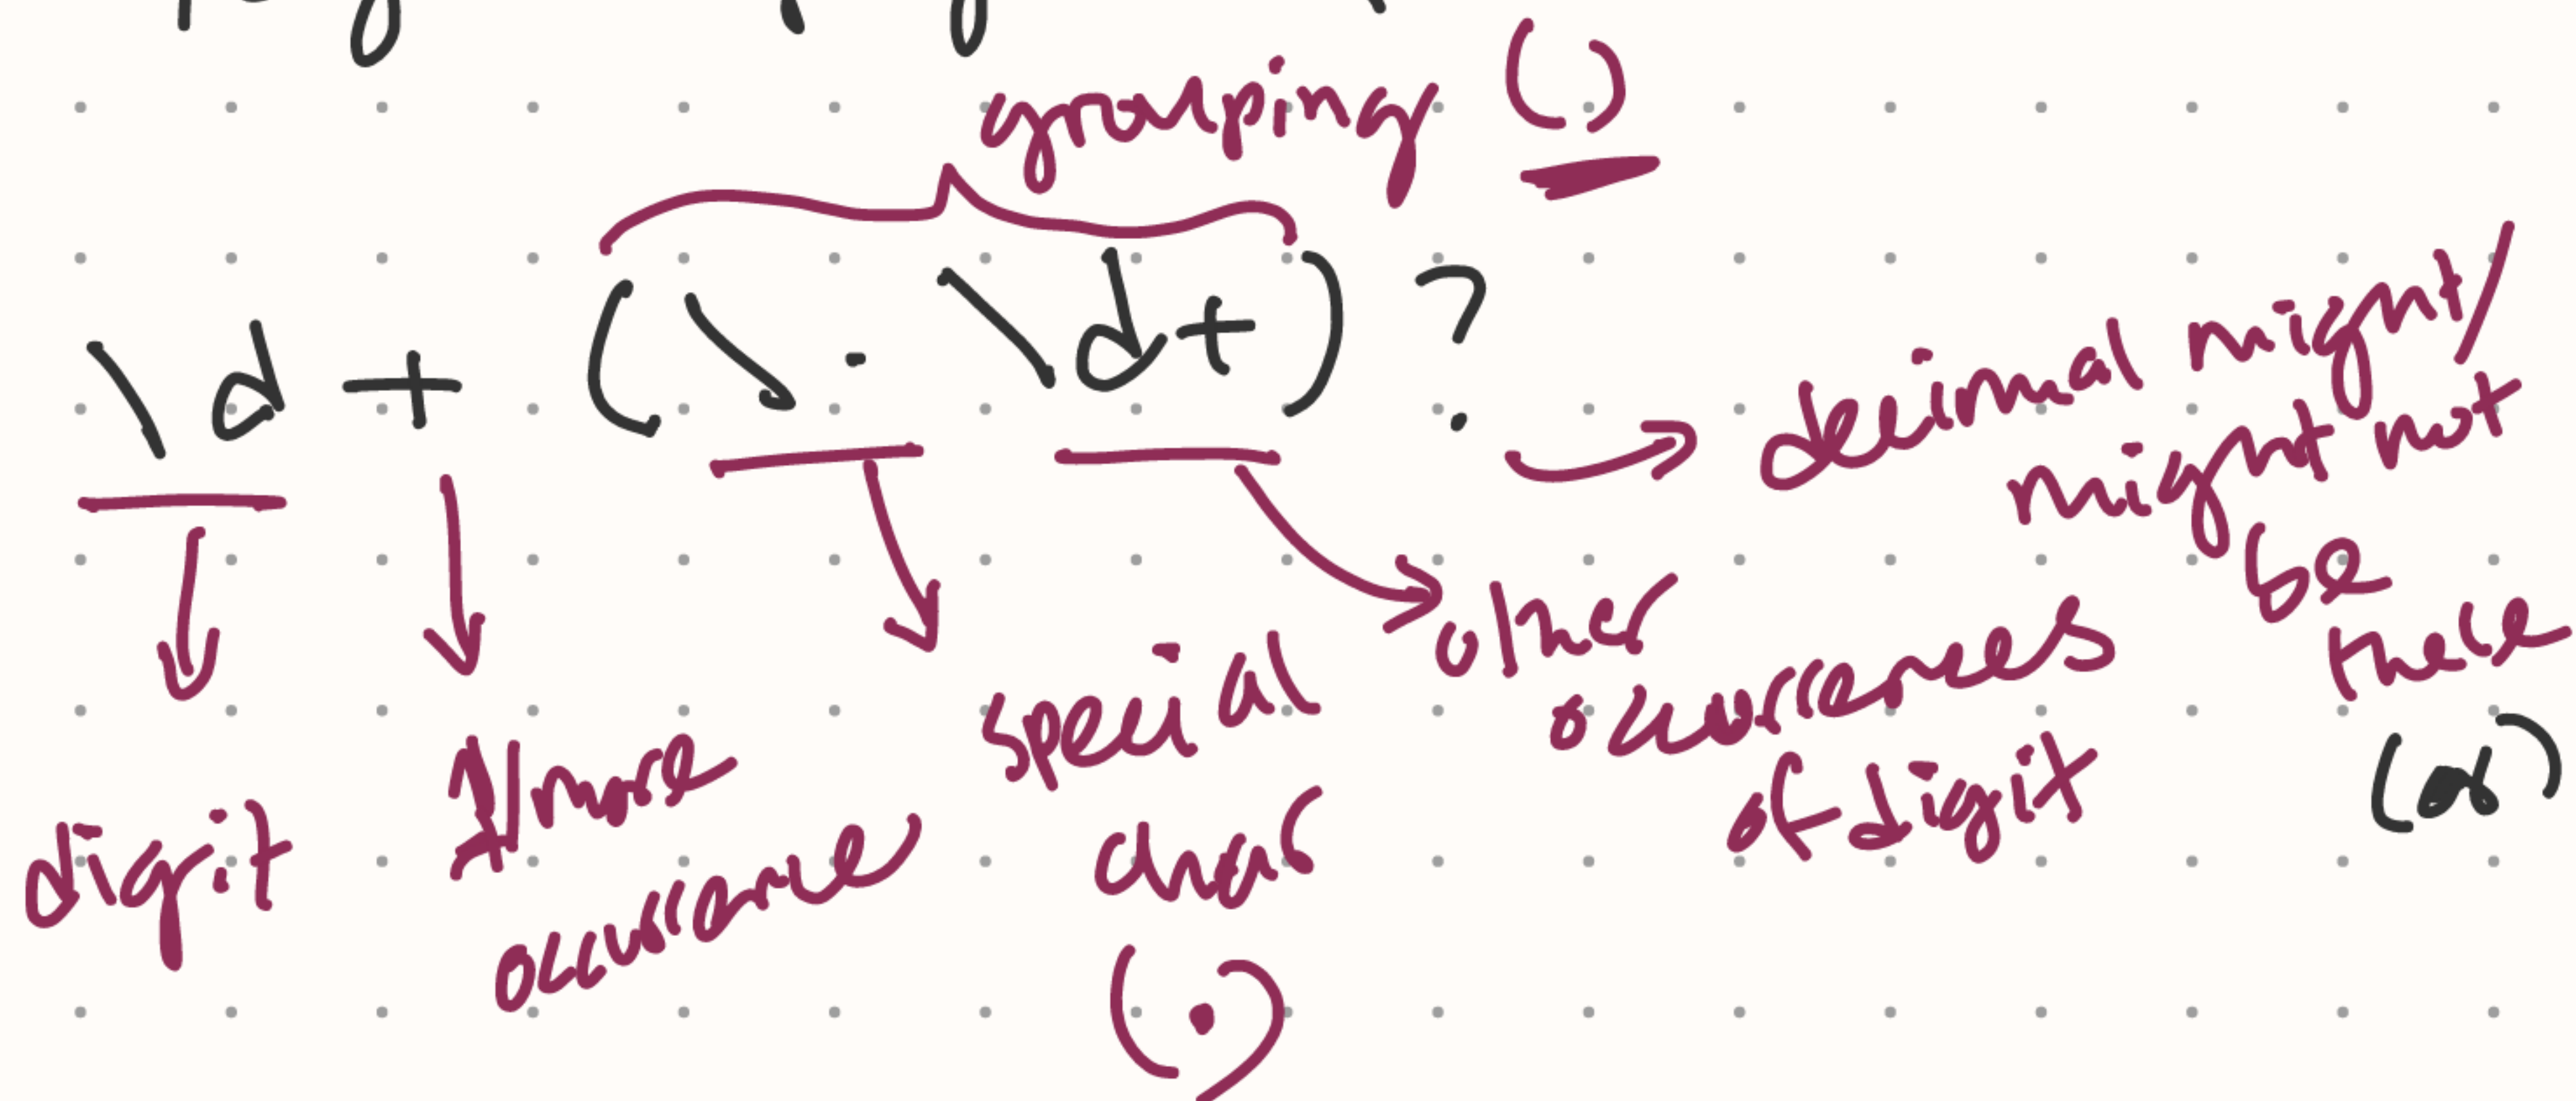 grouping ()
\d + (\. \d+) ?
decimal might/
might not
be
there
(or)
digit
1/more
occurrence
special
char
(.)
other
occurrences
of digit